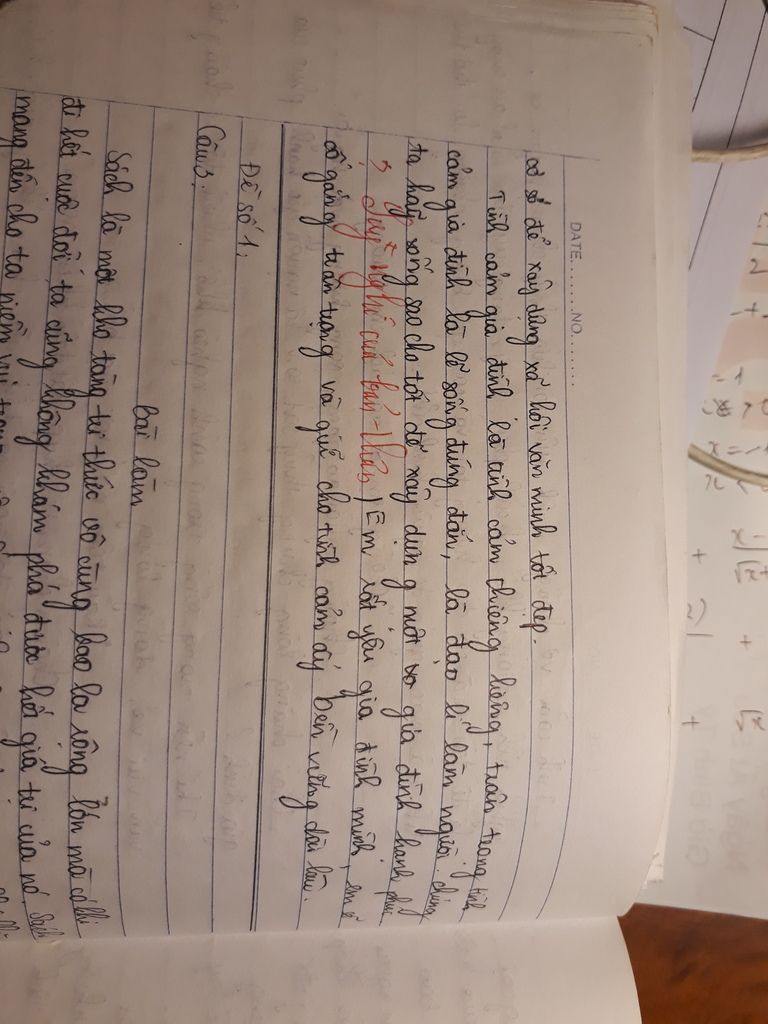 DATE.......NO.......
cơ sở để xây dựng xã hội văn minh tốt đẹp.
Tình cảm gia đình là tình cảm thiêng liêng, trân trọng tình
cảm gia đình là lẽ sống đúng đắn, là đạo lí làm người. chúng
ta hãy sống sao cho tốt để xây dựng một gia đình hạnh phúc
* Suy nghĩ của bản thân) Em rất yêu gia đình mình, em
cố gắng trân trọng và giữ cho tình cảm ấy bền vững dài lâu.
Đề số 1.
Câu 3.
bài làm
Sách là một kho tàng tri thức vô cùng bao la rộng lớn mà có khi
đi hết cuộc đời ta cũng không khám phá được hết giá trị của nó. Sách
mang đến cho ta niềm vui